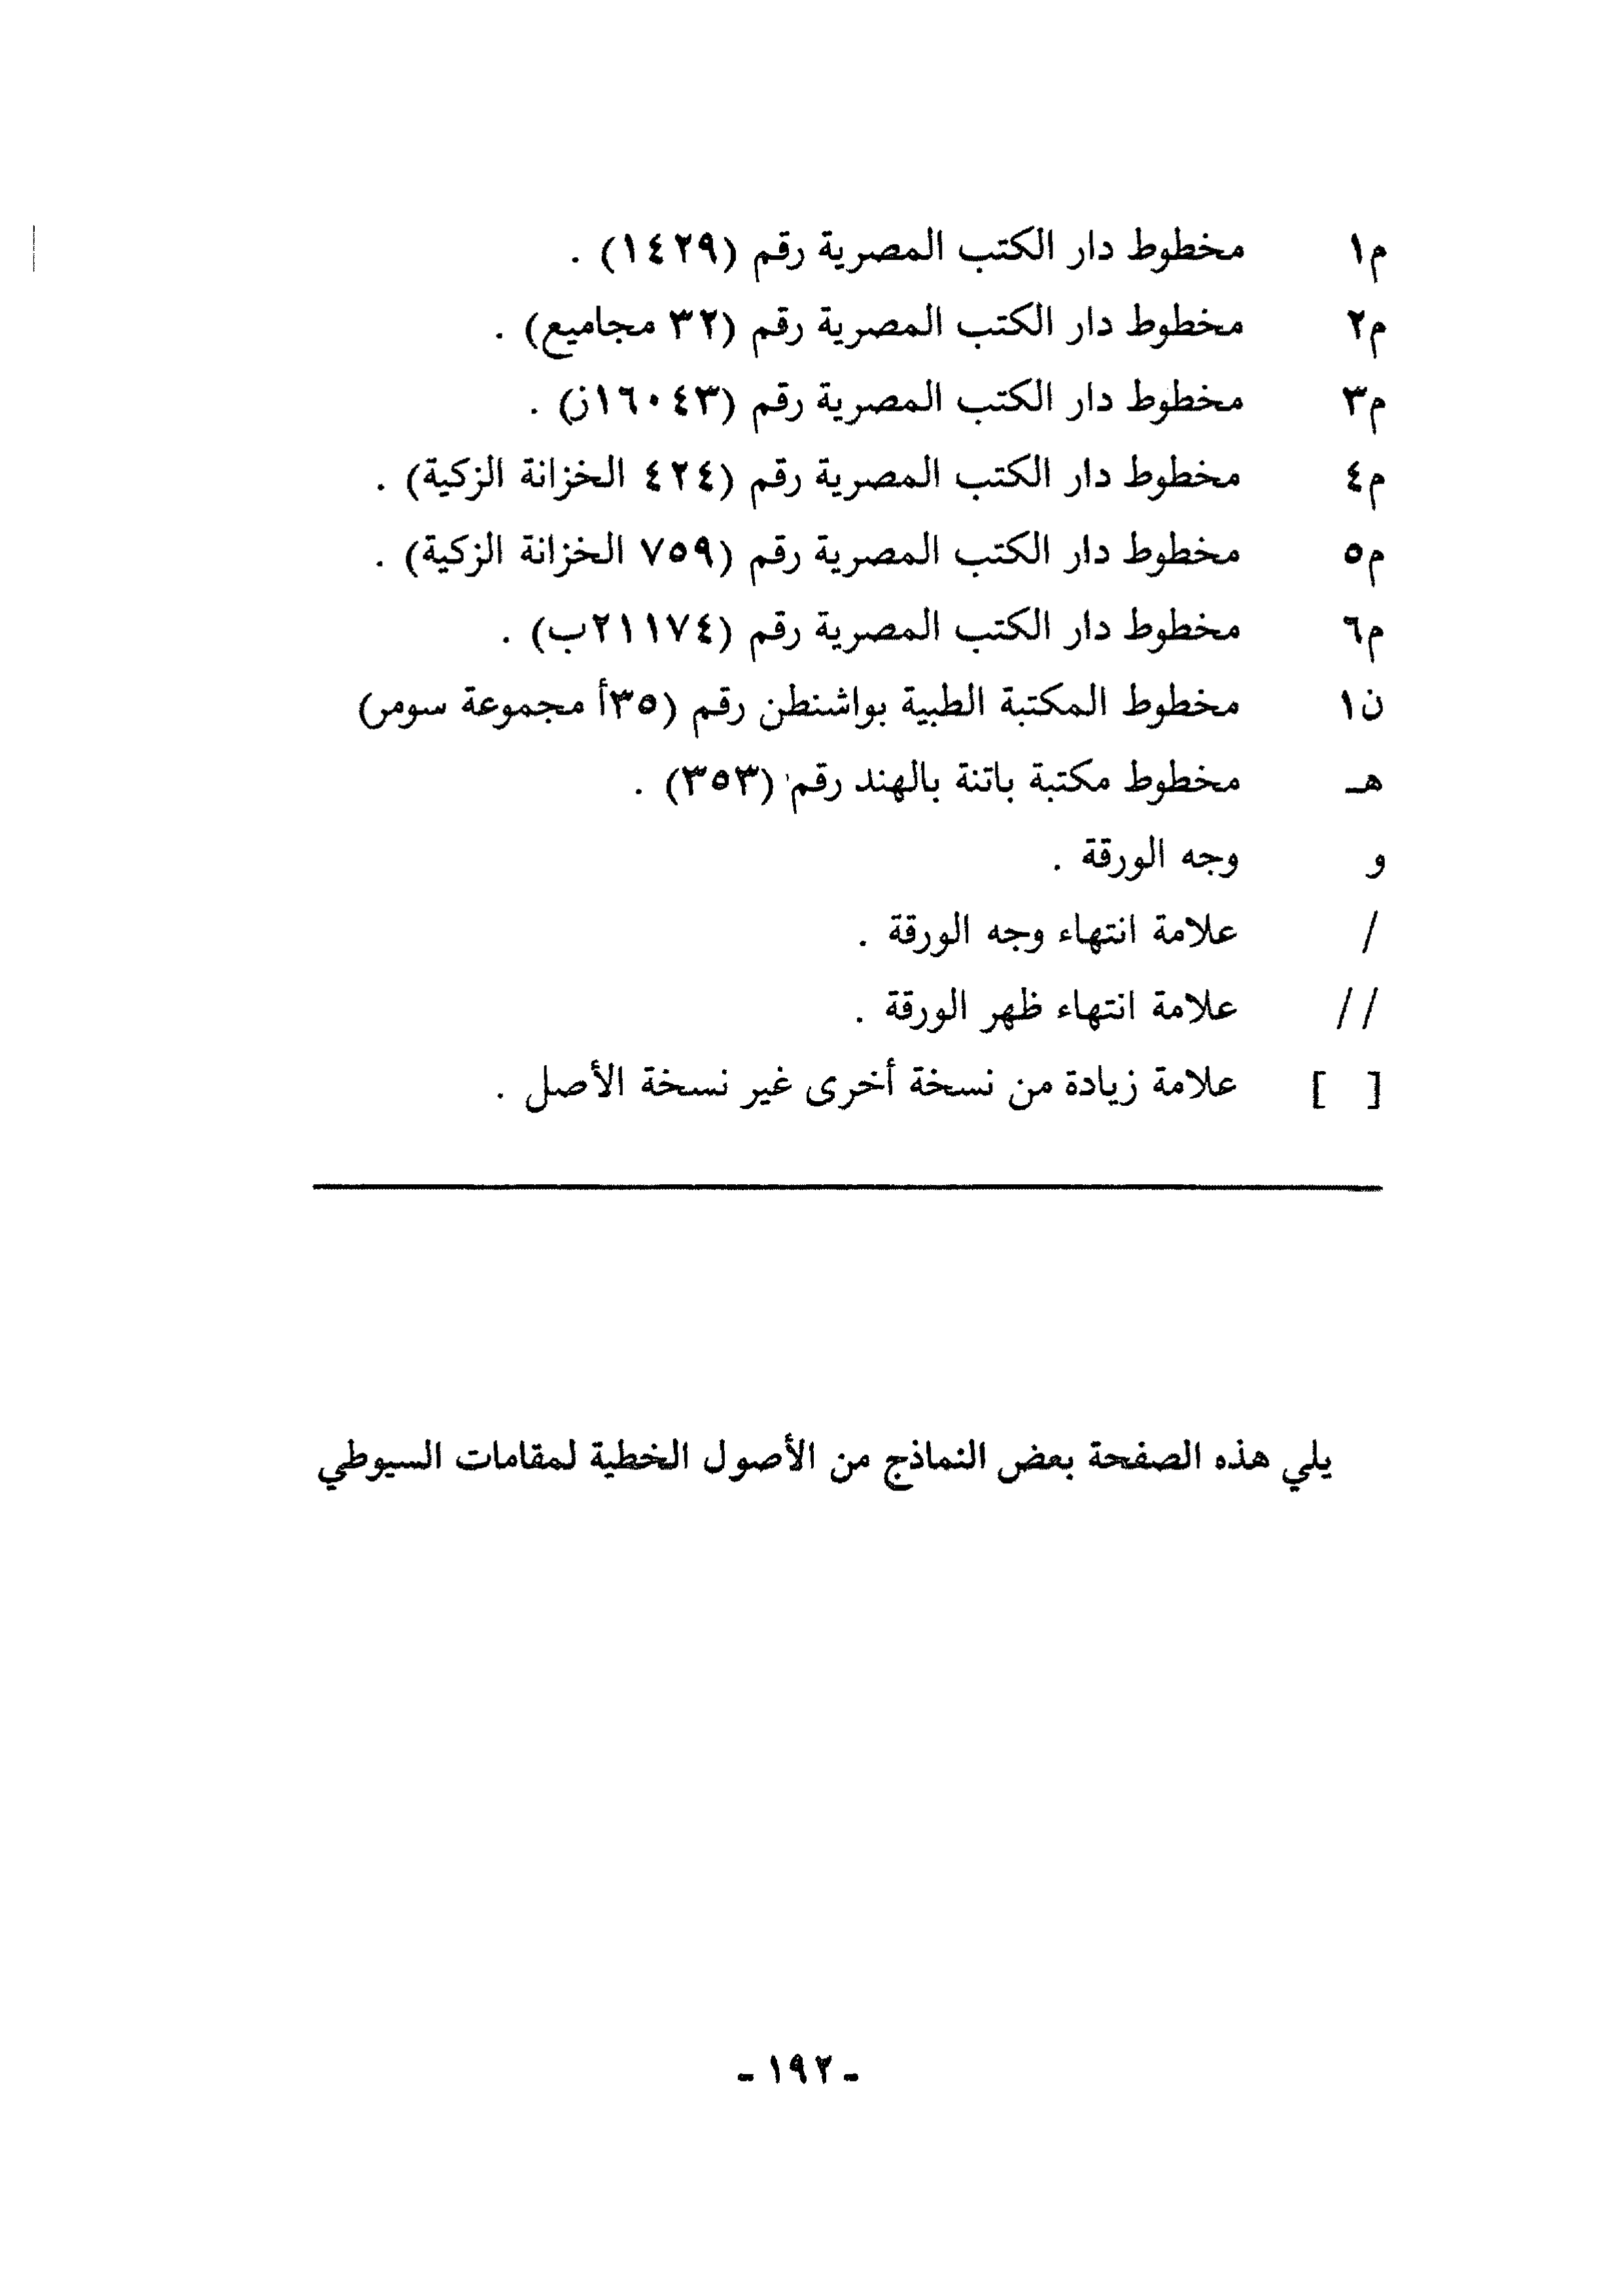 م١ مخطوط دار الكتب المصرية رقم (١٤٢٩) .
م٢ مخطوط دار الكتب المصرية رقم (٣٢ مجاميع) .
م٣ مخطوط دار الكتب المصرية رقم (١٦٠٤٣ز) .
م٤ مخطوط دار الكتب المصرية رقم (٤٢٤ الخزانة الزكية) .
م٥ مخطوط دار الكتب المصرية رقم (٧٥٩ الخزانة الزكية) .
م٦ مخطوط دار الكتب المصرية رقم (٢١١٧٤ب) .
ن١ مخطوط المكتبة الطبية بواشنطن رقم (٣٥أ مجموعة سومر)
هـ مخطوط مكتبة باتنة بالهند رقم (٣٥٣) .
و وجه الورقة .
/ علامة انتهاء وجه الورقة .
// علامة انتهاء ظهر الورقة .
[ ] علامة زيادة من نسخة أخرى غير نسخة الأصل .
يلي هذه الصفحة بعض النماذج من الأصول الخطية لمقامات السيوطي
- ١٩٢ -